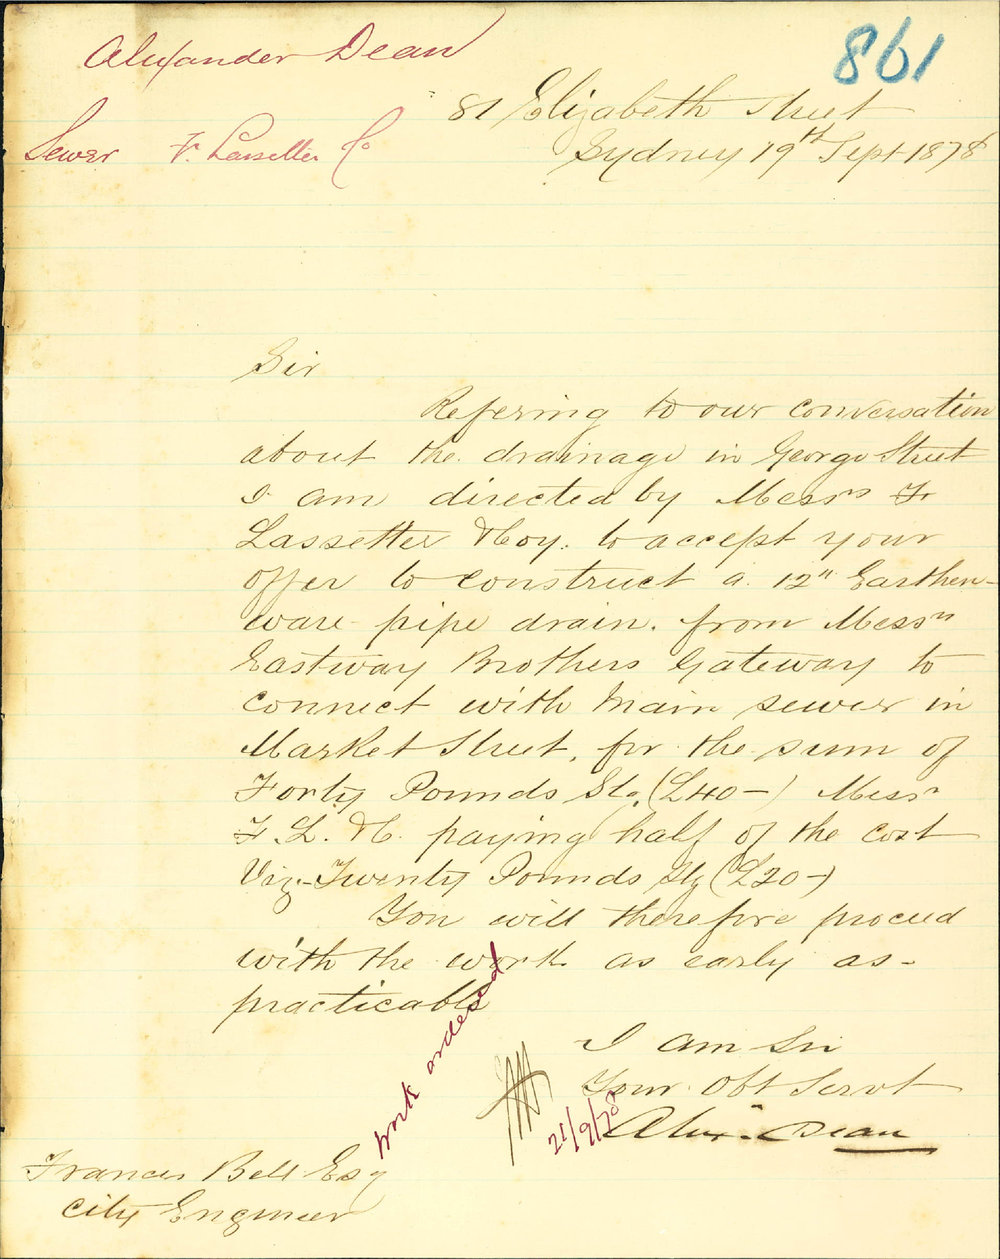 Alexander Dean
861
Sewer F. Lassetter Co
81 Elizabeth Street
Sydney 19th Sept 1878
Sir
Refering to our conversation
about the drainage in George Street
I am directed by Messrs F
Lassetter & Coy. to accept your
offer to construct a 12" Earthen-
ware pipe drain. from Messrs
Eastway Brothers Gateway to
connect with Main sewer in
Market Street, for the sum of
Forty Pounds Stg. (£40-) Messrs
F. L. & C. paying half of the cost
Viz- Twenty Pounds Stg (£20-)
You will therefore proceed
with the work as early as-
practicable
I am Sir
Your Obt Servt
Alex. Dean
work ordered
21/9/78
Francis Bell Esq
City Engineer